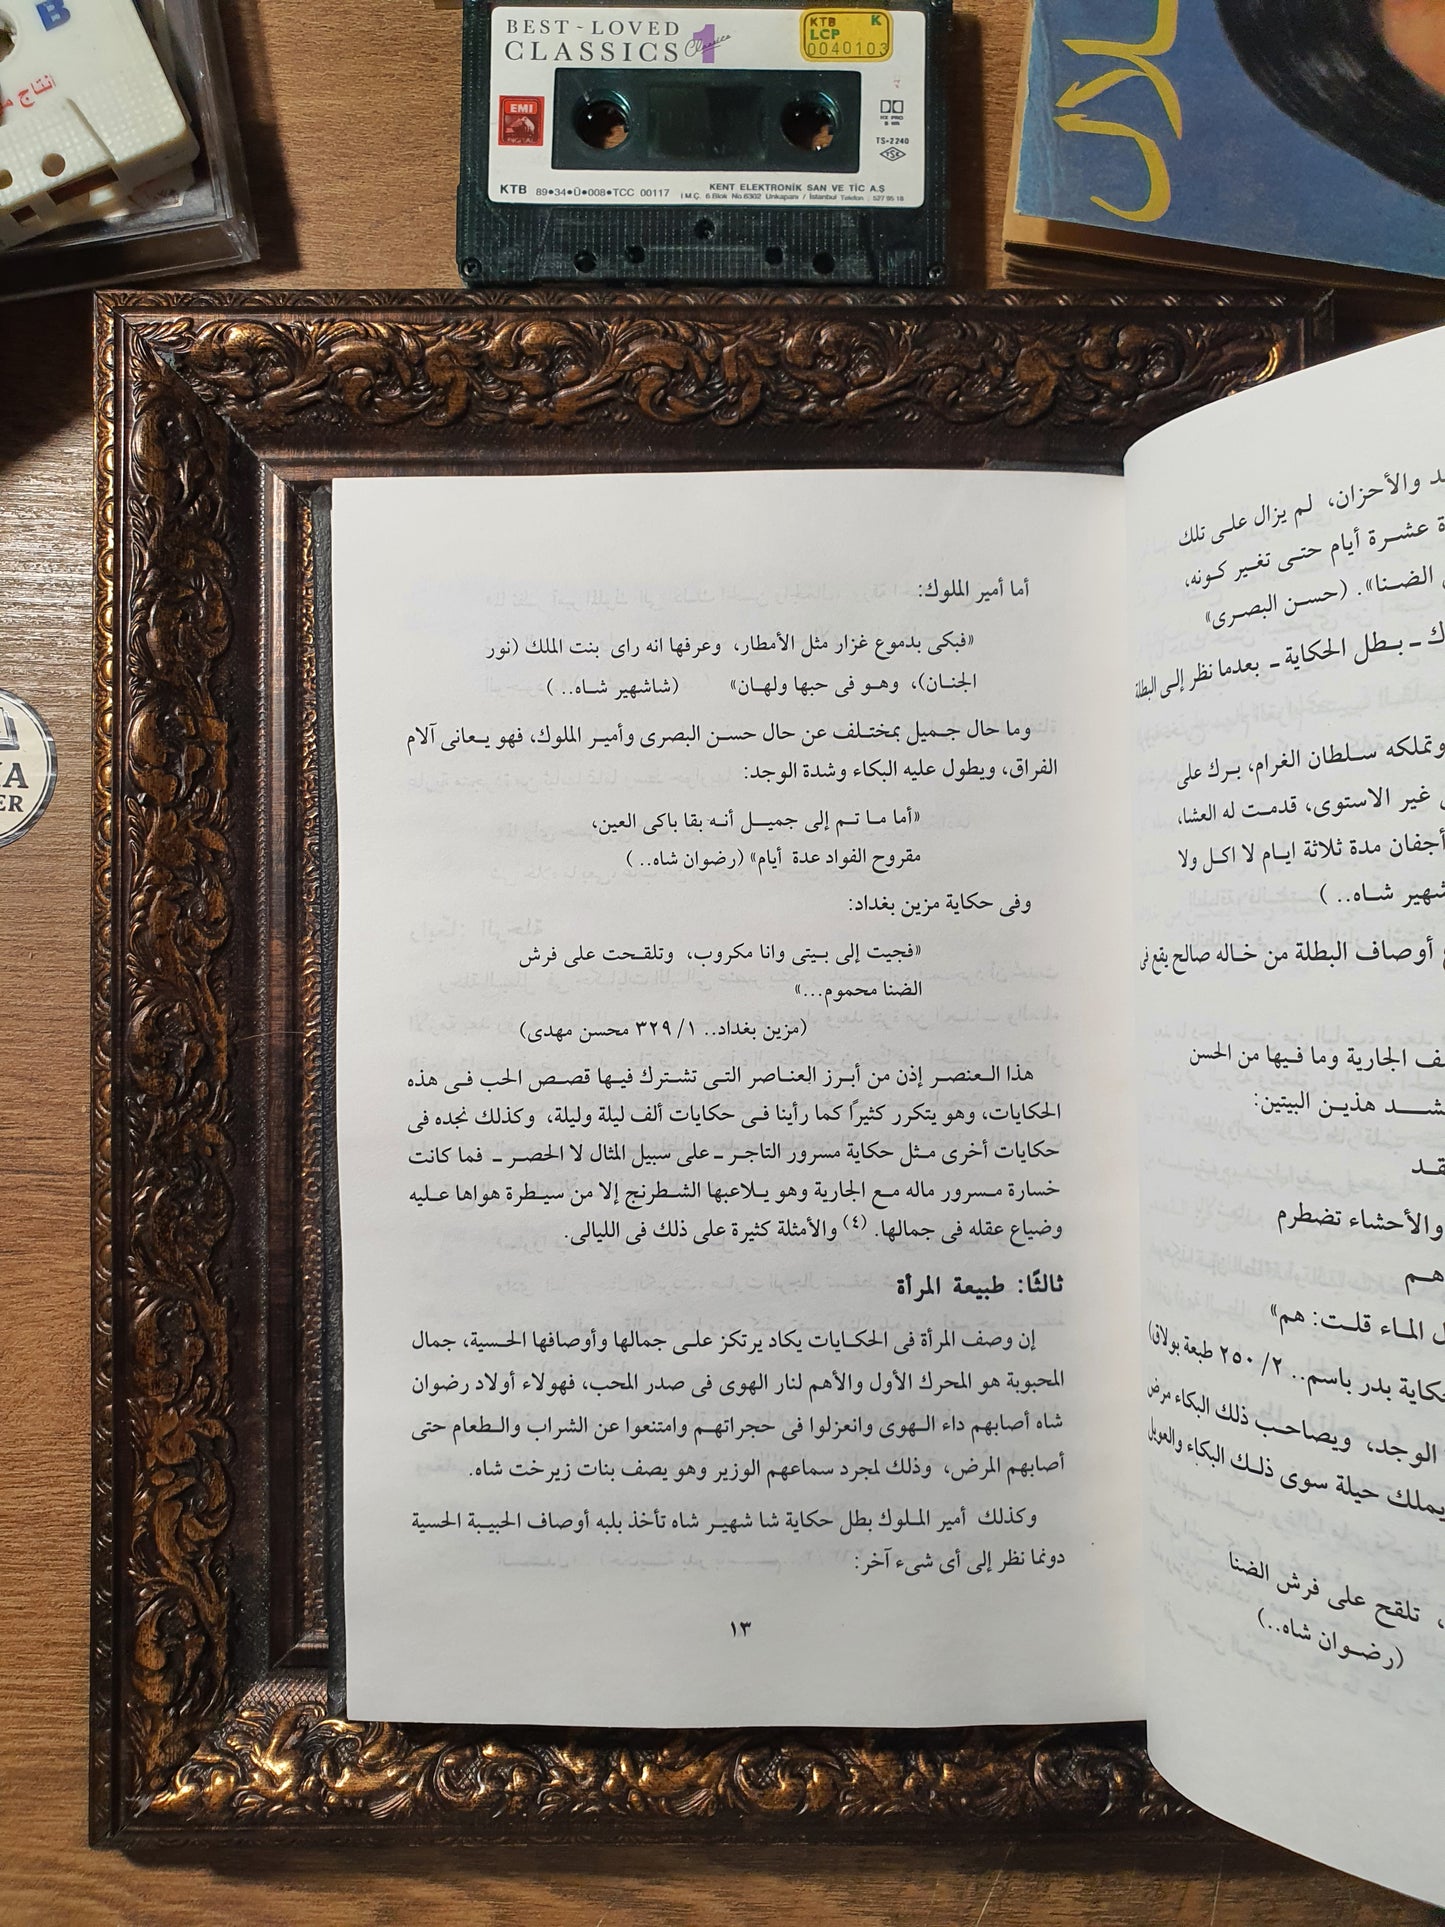 B
انتاج
BEST ~ LOVED
CLASSICS 1
Classics
KTB K
LCP
0040103
EMI
HX PRO
B NR
TS-2240
TSE
KTB 89•34•Ü•008•TCC 00117
KENT ELEKTRONİK SAN VE TİC A.Ş
İ.M.Ç. 6.Blok No.6302 Unkapanı / İstanbul Telefon : 527 95 18
أما أمير الملوك:
«فبكى بدموع غزار مثل الأمطار، وعرفها انه راى بنت الملك (نور
الجنـان)، وهـو فى حبها ولهـان» (شاشهير شـاه.. )
وما حال جـميل بمختـلف عن حال حسـن البصرى وأميـر الملوك، فهو يـعانى آلام
الفراق، ويطول عليه البكاء وشدة الوجد:
«أما مـا تـم إلى جميـل أنـه بقا باكى العين،
مقروح الفواد عدة أيام» (رضوان شاه.. )
وفى حكاية مزين بغداد:
«فجيت إلى بـيتى وانا مكروب، وتلقـحت على فرش
الضنا محموم...»
(مزين بغداد.. ١/ ٣٢٩ محسن مهدى)
هذا الـعنصـر إذن من أبـرز العنـاصر التـى تشـترك فيـها قصـص الحب فـى هذه
الحكايات، وهو يتكرر كثيرًا كما رأينا فـى حكايات ألف ليلة وليلة، وكذلك نجده فى
حكايات أخرى مـثل حكاية مسرور التاجـر ـ على سبيل المثال لا الحصـر ـ فما كانت
خسارة مـسرور ماله مـع الجارية وهو يـلاعبها الشـطرنج إلا من سيـطرة هواها عـليه
وضياع عقله فى جمالها. (٤) والأمثلة كثيرة على ذلك فى الليالى.
ثالثًا: طبيعة المرأة
إن وصف المرأة فى الحكـايات يكاد يرتكز علـى جمالها وأوصافها الحـسية، جمال
المحبوبة هو المحرك الأول والأهم لنار الهوى فى صدر المحب، فهولاء أولاد رضوان
شاه أصابهم داء الـهوى وانعزلوا فى حجراتهـم وامتنعوا عن الشراب والـطعام حتى
أصابهم المرض، وذلك لمجرد سماعهم الوزير وهو يصف بنات زيرخت شاه.
وكذلك أمير المـلوك بطل حكاية شا شهيـر شاه تأخذ بلبه أوصاف الحبيـبة الحسية
دونما نظر إلى أى شىء آخر:
١٣
والأحزان، لم يزال علـى تلك
عشـرة أيام حتـى تغـير كـونه،
الضـنا». (حسـن البصـرى»
ـ بـطل الحكاية ـ بعدما نظر إلى البطلة
وتملكه سـلطان الغرام، بـرك على
غير الاستوى، قدمـت له العشا،
أجفان مدة ثلاثة ايـام لا اكـل ولا
شـاه.. )
أوصاف البطلة من خـاله صالح يقع فى
الجارية وما فـيها من الحسن
هذيـن البيتين:
والأحشاء تضطرم
المـاء قلـت: هم»
حكاية بدر باسم.. ٢/ ٢٥٠ طبعة بولاق)
الوجد، ويصاحـب ذلك البكاء مرض
يملك حيلة سوى ذلـك البكاء والعويل
تلقح على فرش الضنا
(رضـوان شاه..)